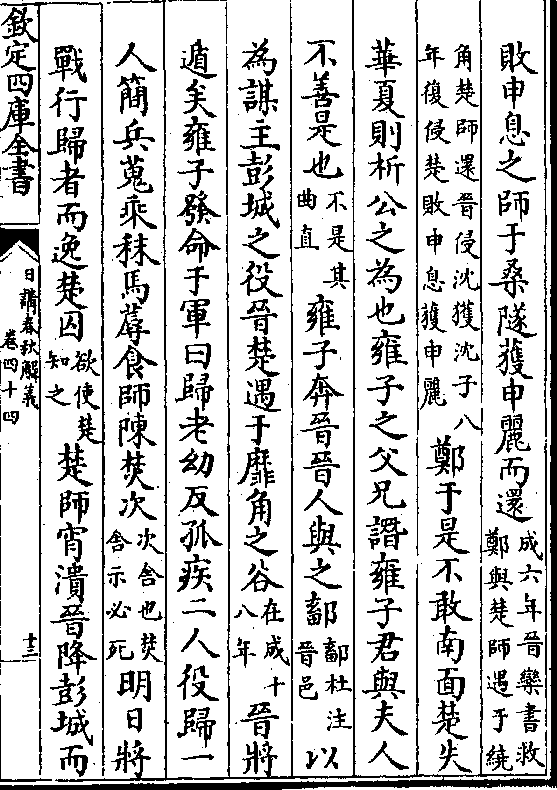 敗申息之師于桑隧獲申麗而還成六年晉欒書救鄭與楚師遇于繞
角楚師還晉侵沈獲沈子八年復侵楚敗申息獲申麗鄭于是不敢南面楚失
華夏則析公之為也雍子之父兄譖雍子君與夫人
不善是也不是其曲直雍子奔晉晉人與之鄐鄐杜注晉邑以
為謀主彭城之役晉楚遇于靡角之谷在成十八年晉將
遁矣雍子發命于軍曰歸老幼反孤疾二人役歸一
人簡兵蒐乘秣馬蓐食師陳焚次次舍也焚舍示必死明日將
戰行歸者而逸楚囚欲使楚知之楚師宵潰晉降彭城而
欽定四庫全書
日講春秋解義
卷四十四
十三